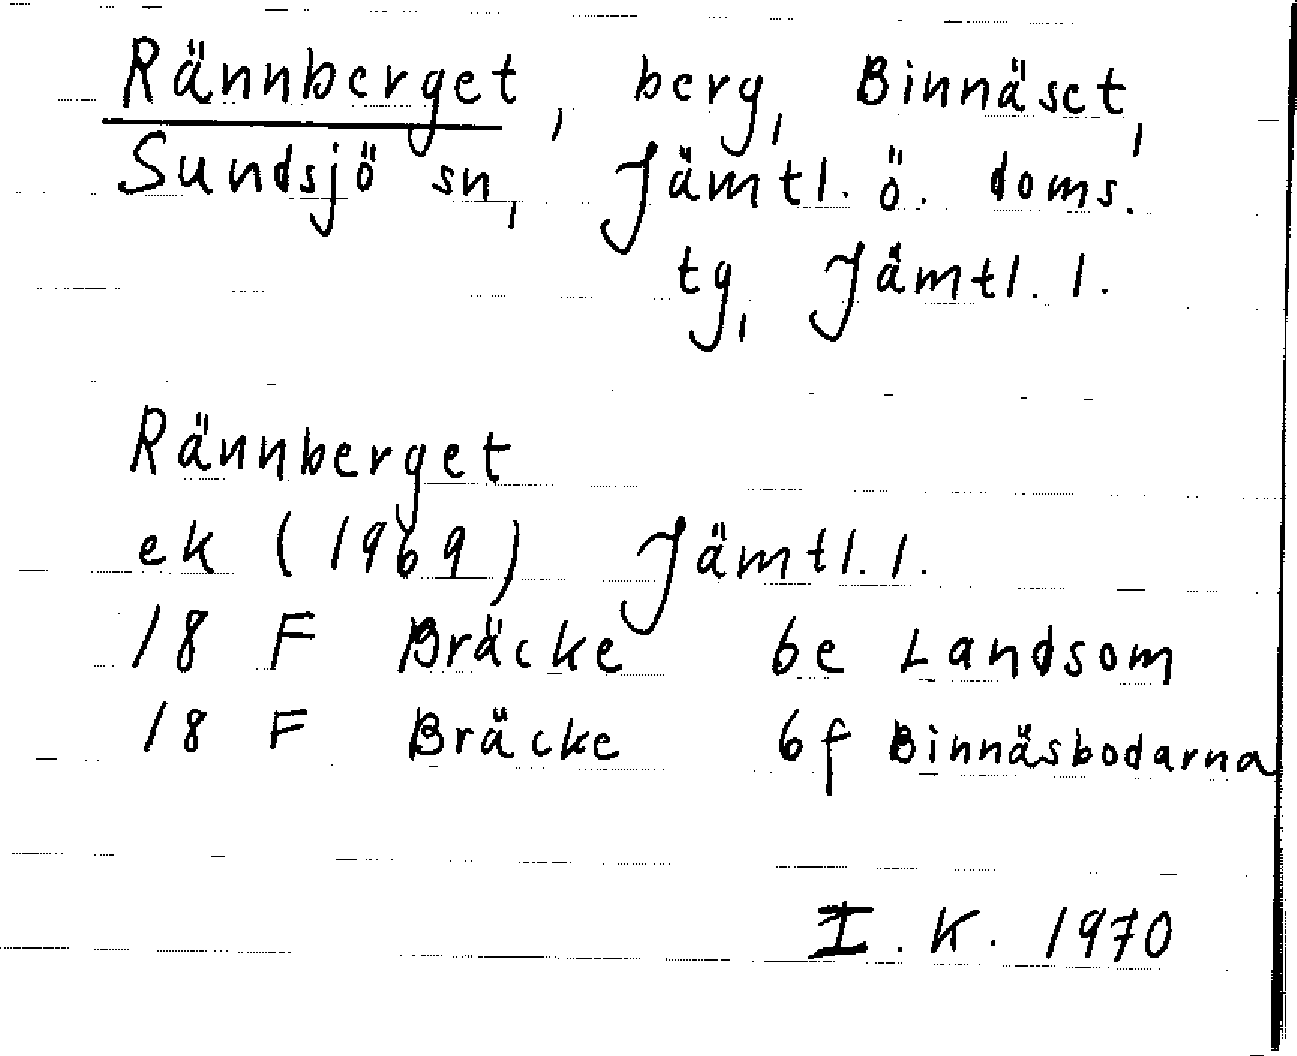 Rännberget, berg, Binnäset,
Sundsjö sn, Jämtl. ö. doms.
tg, Jämtl. l.
Rännberget
ek (1969) Jämtl. l.
18 F Bräcke 6e Landsom
18 F Bräcke 6f Binnäsbodarna
I. K. 1970